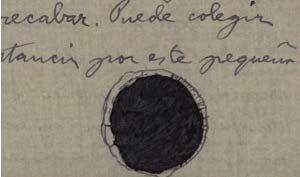 recabar. Puede colegir
tancia por este pequeñ